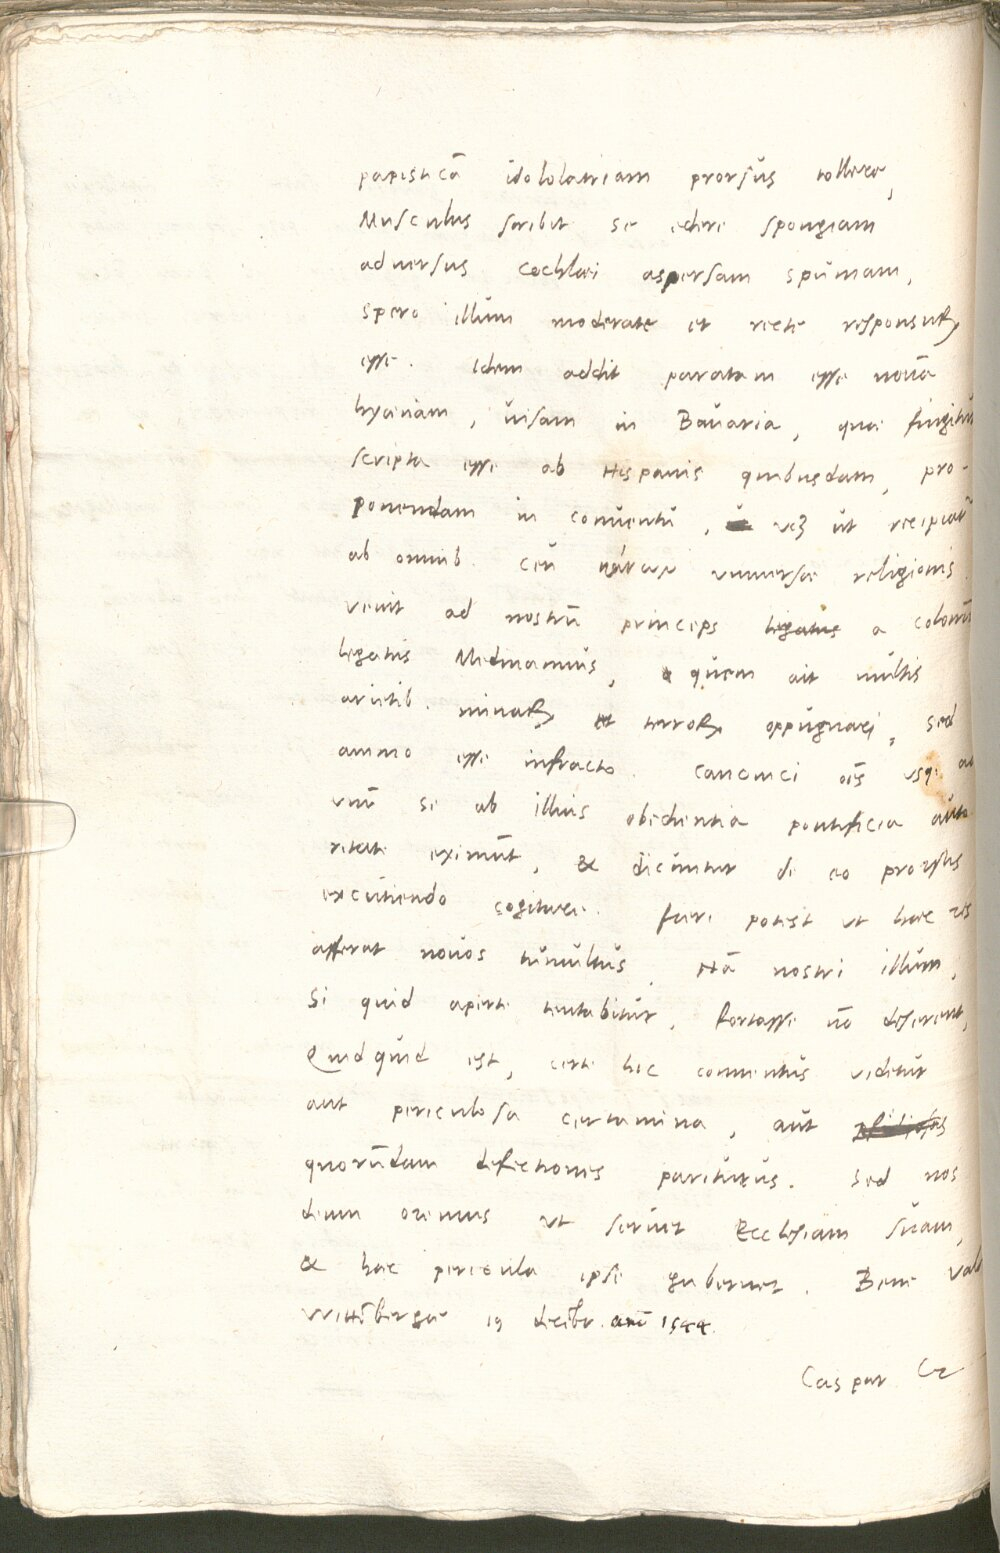 papisticā idololatriam prorsus tollere,
Musculus scribit se edere spongiam
adversus Cochlaei aspersam spumam,
Spero illum moderate et recte responsurꝝ
esse. Idem addit paratam esse novā
hyaenam, visam in Bavaria, quae fingitur
scripta esse ab Hispanis quibusdam, pro-
ponendam in conventu, ut recipiat
ab omnib. ceu universae religionis.
venit ad nostrū princeps a
legatus Medmannus, quem ait multis
arietib. minaꝝ et terroꝝ oppugnari, sed
animo esse infracto. Canonici oēs usq. ad
unū se ab illius obedientia pontificia auto
ritate eximūt, & dicuntur de eo prorsus
excutiendo cogitare. fieri potest ut haec res
afferat novos tumultus, Nā nostri illum,
Si quid aperte tentabitur, fortasse nō deserent,
Quidquid est, certe hic conventus videtur
aut periculosa certamina, aut
quorundam defectiones pariturus. Sed nos
deum oremus ut servet Ecclesiam suam,
& haec pericula ipse gubernet. Bene Vale
Wittēbergae 19 decēbr. anī 1544.
Caspar Cr